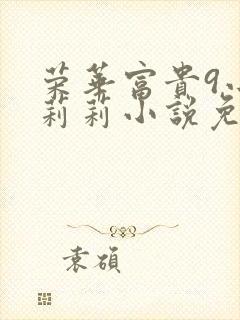 荣華富貴9
莉莉小說免
袁碩